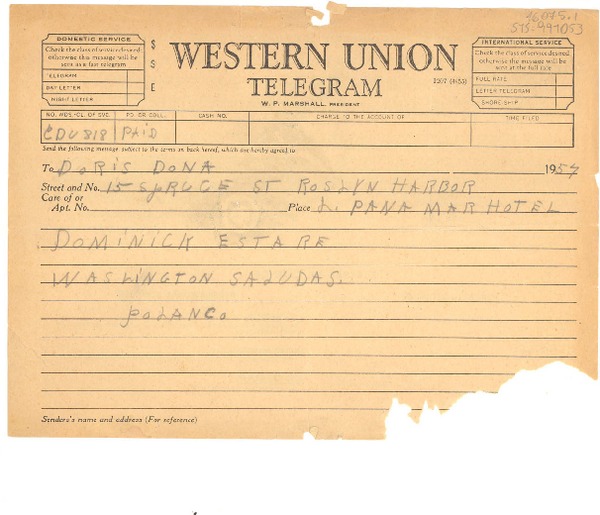 96075.1
575-991053
DOMESTIC SERVICE
Check the class of service desired
otherwise this message will be
sent as a fast telegram
TELEGRAM
DAY LETTER
NIGHT LETTER
$
S
E
WESTERN UNION
TELEGRAM
W. P. MARSHALL, PRESIDENT
1207 (4-55)
INTERNATIONAL SERVICE
Check the class of service desired
otherwise the message will be
sent at the full rate
FULL RATE
LETTER TELEGRAM
SHORE-SHIP
NO. WDS.-CL. OF SVC. PD. OR COLL. CASH NO. CHARGE TO THE ACCOUNT OF TIME FILED
CDU818 PAID
Send the following message, subject to the terms on back hereof, which are hereby agreed to
To DORIS DONA 1957
Street and No. 15 SPRUCE ST ROSLYN HARBOR
Care of or
Apt. No. Place L. PANA MAR HOTEL
DOMINICK ESTARE
WASLINGTON SALUDAS.
POLANCO
Sender's name and address (For reference)